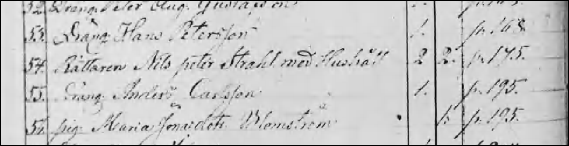 52. Dräng Per Aug. Gustafsson 1. p. 148.
53. Dräng Hans Petersson 1. p. 168.
54. Rättaren Nils peter Strahl med Hushåll 2 2. p. 175.
55. Dräng Anders Carlsson 1. p. 195.
56. pig. Maria Jonasdotr Blomström 1. p. 195.